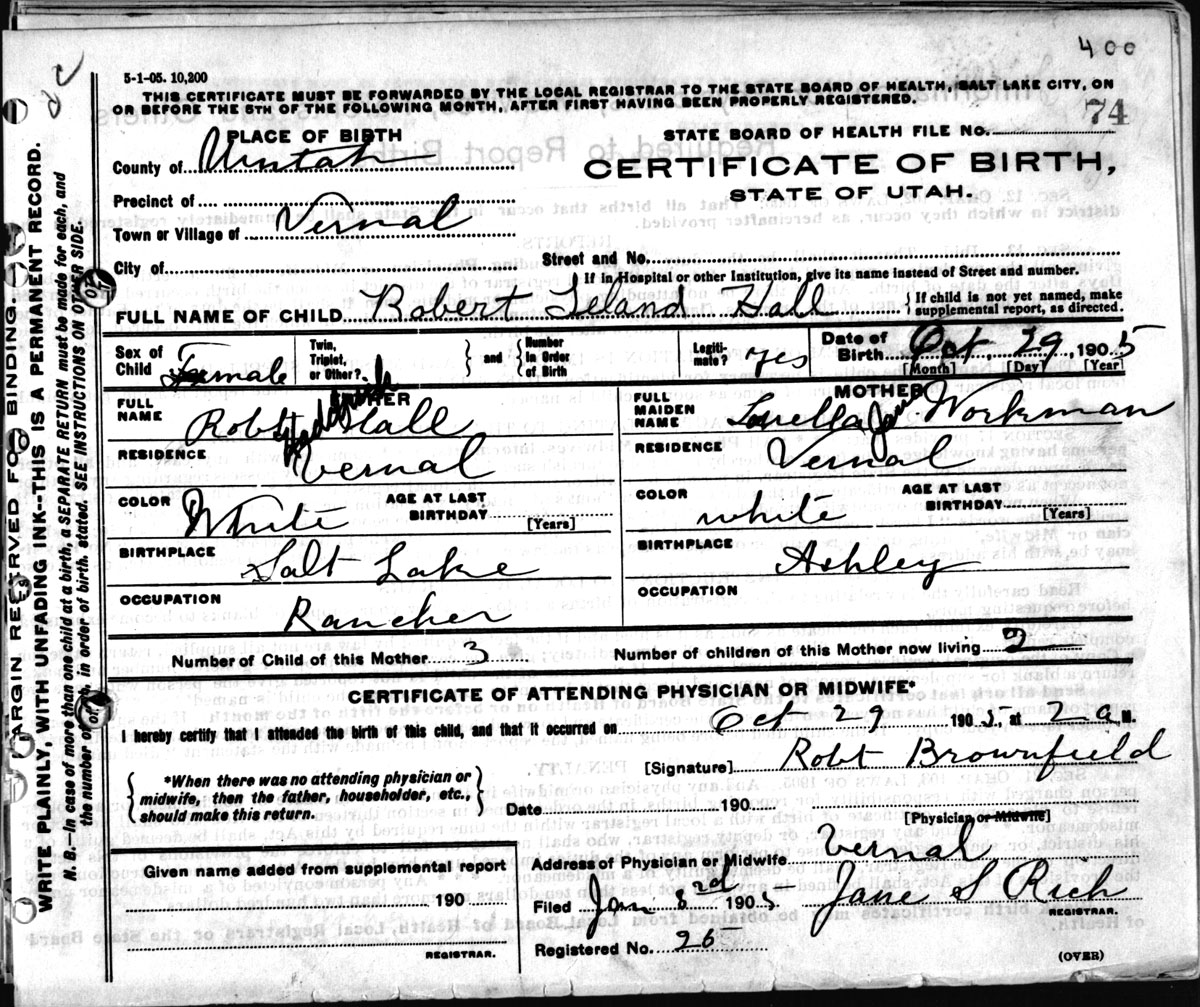 400
5-1-05. 10,200
THIS CERTIFICATE MUST BE FORWARDED BY THE LOCAL REGISTRAR TO THE STATE BOARD OF HEALTH, SALT LAKE CITY, ON
OR BEFORE THE 5TH OF THE FOLLOWING MONTH, AFTER FIRST HAVING BEEN PROPERLY REGISTERED.
74
PLACE OF BIRTH
STATE BOARD OF HEALTH FILE No.
County of Uintah
CERTIFICATE OF BIRTH,
STATE OF UTAH.
Precinct of
Town or Village of Vernal
City of
Street and No.
If in Hospital or other Institution, give its name instead of Street and number.
FULL NAME OF CHILD Robert Leland Hall
If child is not yet named, make supplemental report, as directed.
Sex of Child Female
Twin, Triplet, or Other?
and
Number In Order of Birth
Legiti-mate? yes
Date of Birth Oct 29, 1905
[Month] [Day] [Year]
FULL NAME Robt Hall
MOTHER
FULL MAIDEN NAME Workman
RESIDENCE Vernal
RESIDENCE Vernal
COLOR White
AGE AT LAST BIRTHDAY [Years]
COLOR white
AGE AT LAST BIRTHDAY [Years]
BIRTHPLACE Salt Lake
BIRTHPLACE Ashley
OCCUPATION Rancher
OCCUPATION
Number of Child of this Mother 3
Number of children of this Mother now living 2
CERTIFICATE OF ATTENDING PHYSICIAN OR MIDWIFE*
I hereby certify that I attended the birth of this child, and that it occurred on Oct 29 1905, at 2 a M.
*When there was no attending physician or
midwife, then the father, householder, etc.,
should make this return.
[Signature] Robt Brownfield
Date 190
[Physician or Midwife]
Given name added from supplemental report
190
REGISTRAR.
Address of Physician or Midwife Vernal
Filed Jan 1905 Jane S Rich
REGISTRAR.
Registered No. 26
(OVER)
MARGIN RESERVED FOR BINDING
WRITE PLAINLY, WITH UNFADING INK--THIS IS A PERMANENT RECORD.
N. B.--In case of more than one child at a birth, a SEPARATE RETURN must be made for each, and
the number of each, in order of birth, stated. SEE INSTRUCTIONS ON OTHER SIDE.